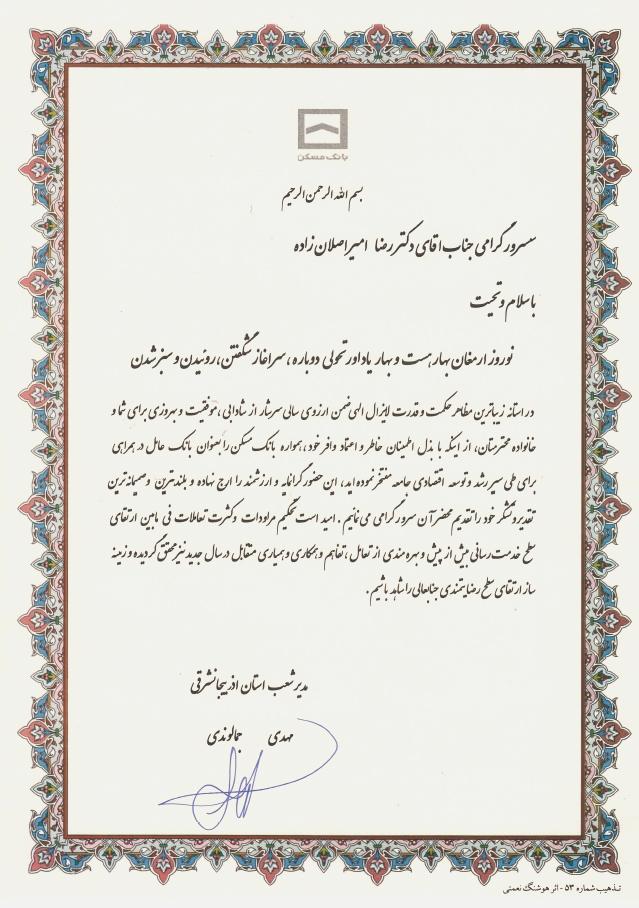 بانک مسکن
بسم الله الرحمن الرحیم
سرور گرامی جناب اقای دکتر رضا امیراصلان زاده
باسلام و تحیت
نوروز ارمغان بهار هست و بهار یاد اور تحولی دوباره ، سراغاز شگفتن ، روئیدن و سبز شدن
در استانه زیباترین مظاهر حکمت و قدرت لایزال الهی ضمن ارزوی سالی سرشار از شادابی ، موفقیت و بهروزی برای شما و
خانواده محترمتان ، از اینکه با بذل اطمینان خاطر و اعتماد وافر خود ، همواره بانک مسکن را بعنوان بانک عامل در همراهی
برای طی سیر رشد و توسعه اقتصادی جامعه مفتخر نموده اید ، این حضور گرانمایه و ارزشمند را ارج نهاده و بلندترین وصمیمانه ترین
تقدیر و تشکر خود را تقدیم محضر آن سرور گرامی می نمائیم . امید است تحکیم مراودات وکثرت تعاملات فی مابین ارتقای
سطح خدمت رسانی بیش از پیش و بهره مندی از تعامل ، تفاهم و همکاری و همیاری متقابل در سال جدید نیز محقق گردیده و زمینه
ساز ارتقای سطح رضایتمندی جنابعالی را شاهد باشیم .
مدیر شعب استان اذربیجانشرقی
مهدی جمالوندی
تذهیب شماره ۵۳ - اثر هوشنگ نعمتی